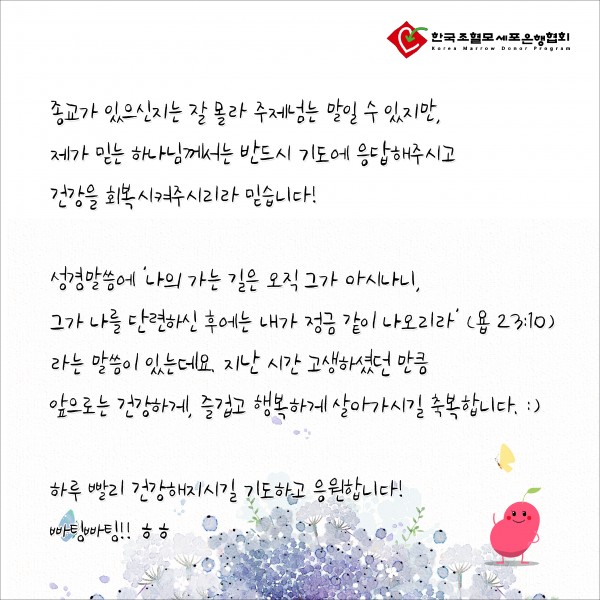 한국조혈모세포은행협회
Korea Marrow Donor Program
종교가 있으신지는 잘 몰라 주제넘는 말일 수 있지만,
제가 믿는 하나님께서는 반드시 기도에 응답해주시고
건강을 회복시켜주시리라 믿습니다!
성경말씀에 '나의 가는 길은 오직 그가 아시나니,
그가 나를 단련하신 후에는 내가 정금 같이 나오리라' (욥 23:10)
라는 말씀이 있는데요. 지난 시간 고생하셨던 만큼
앞으로는 건강하게, 즐겁고 행복하게 살아가시길 축복합니다. :)
하루 빨리 건강해지시길 기도하고 응원합니다!
빠팅빠팅!! ㅎㅎ